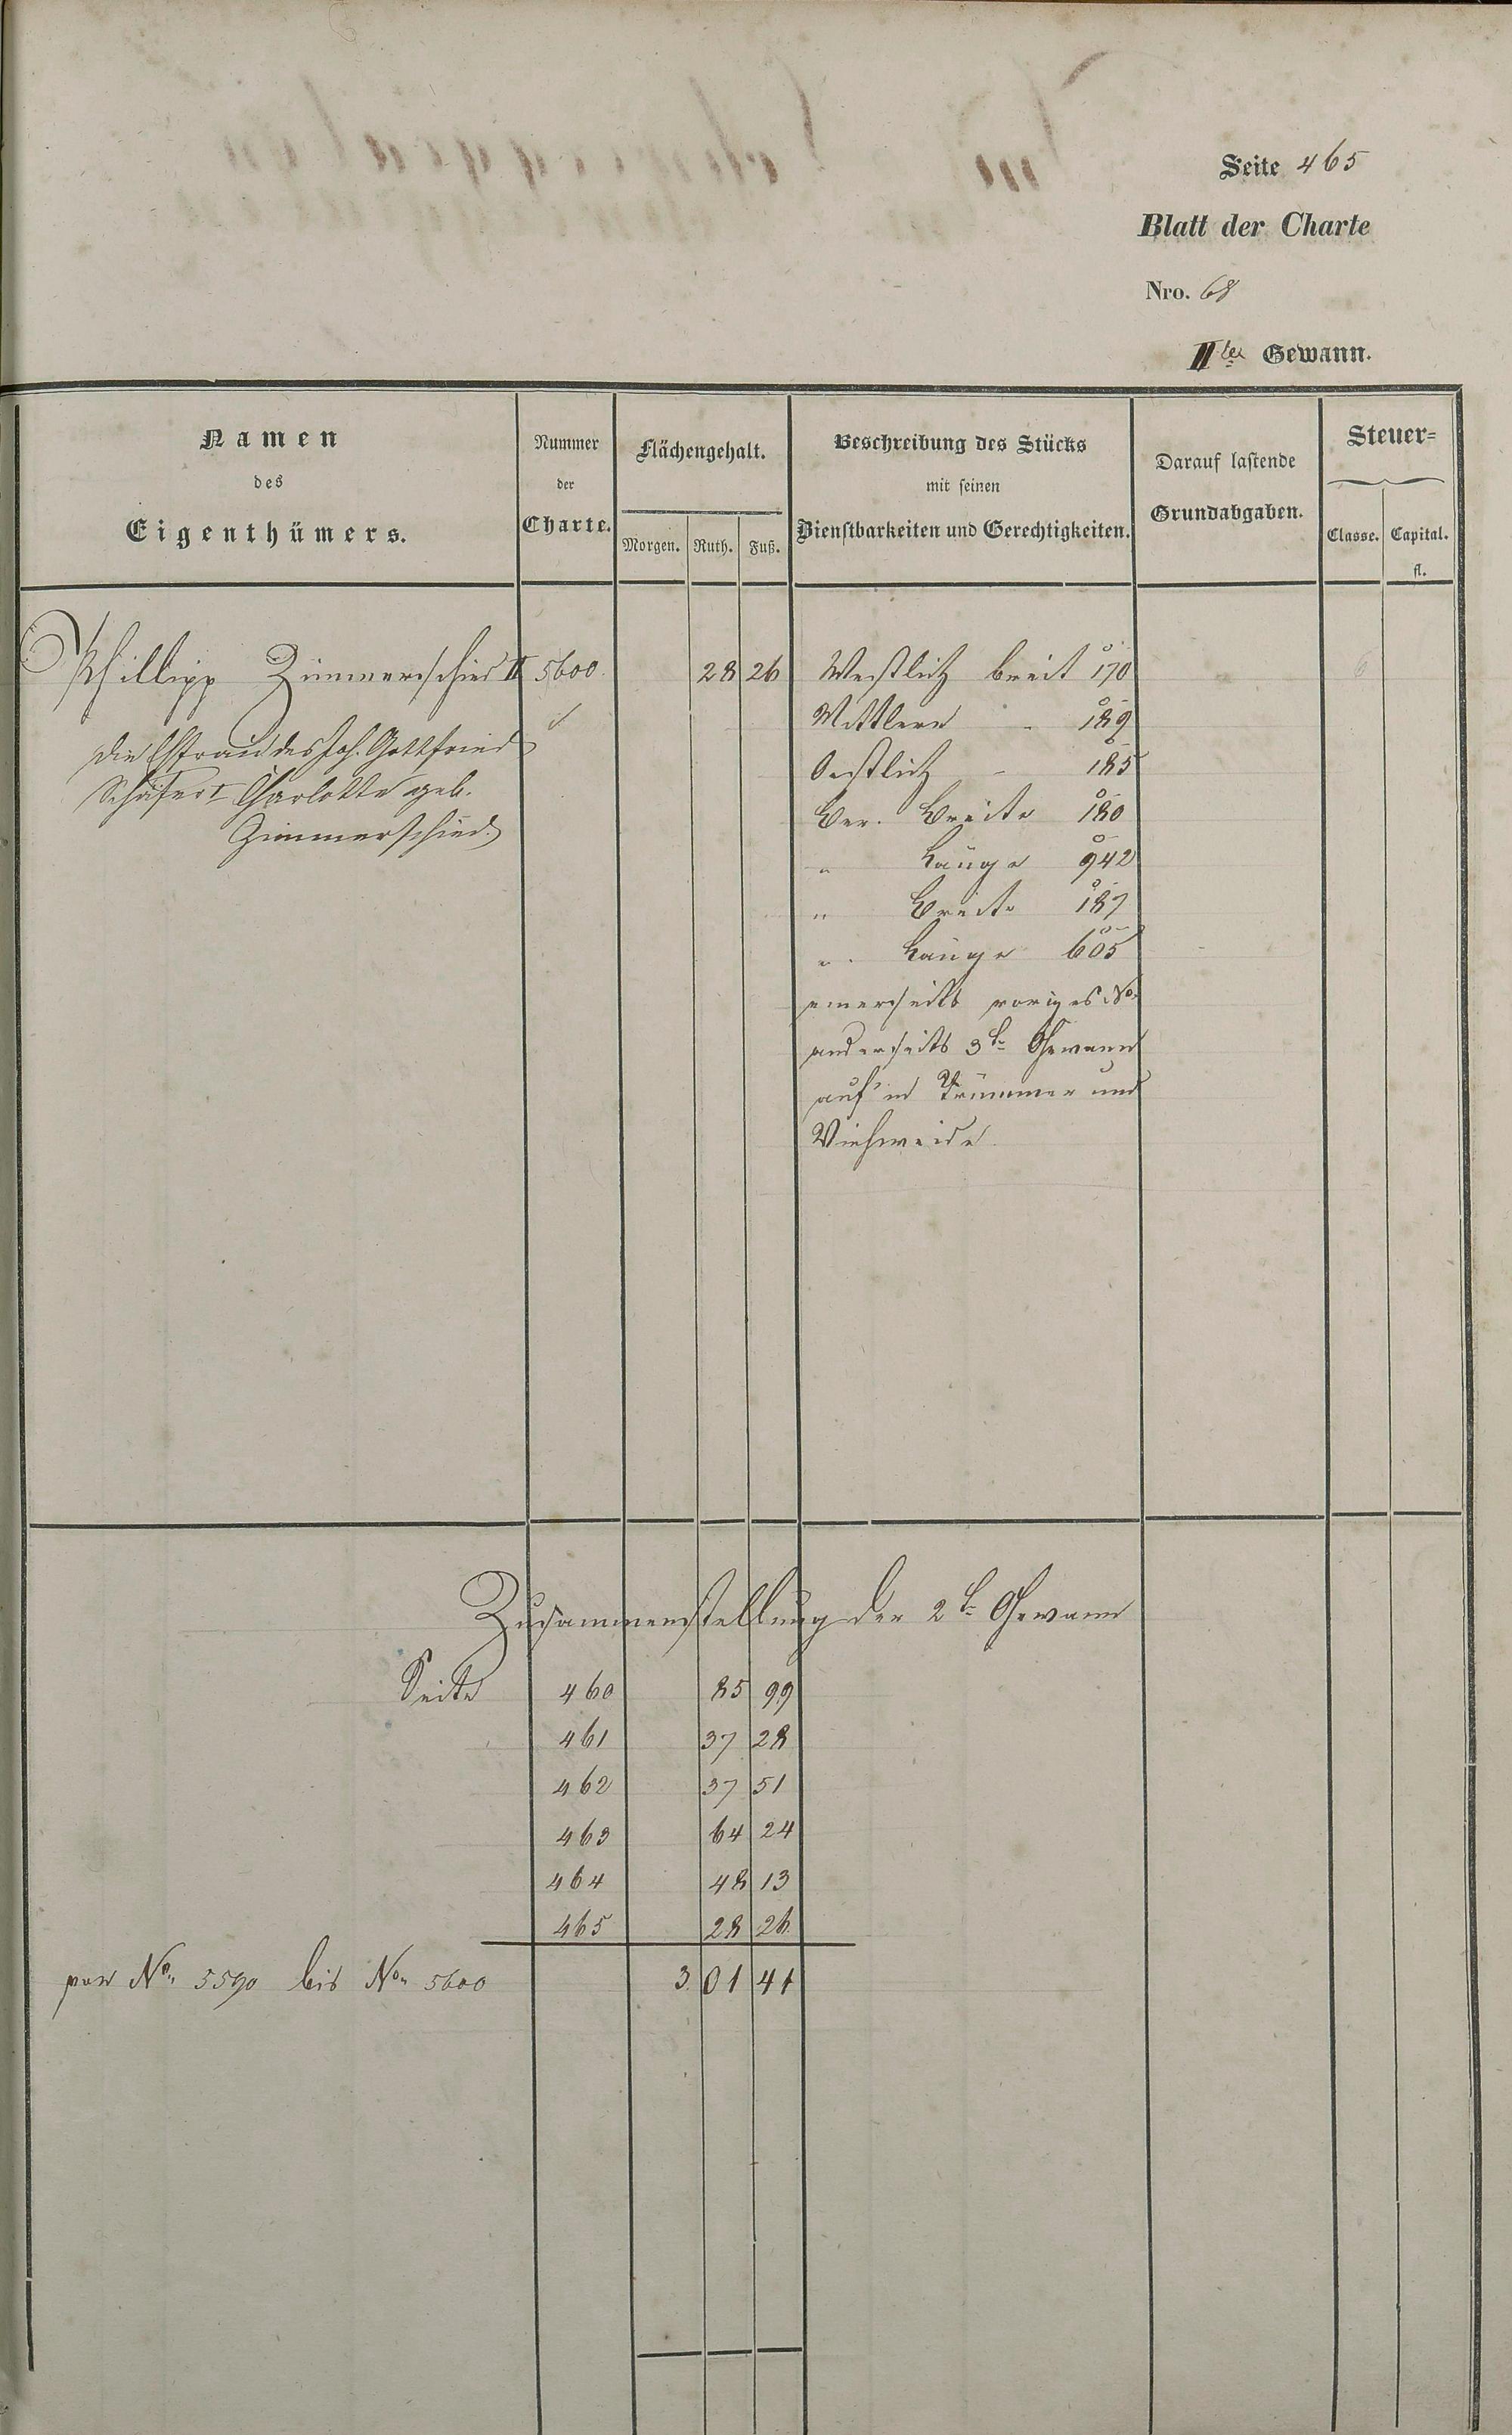 Seite 465
Blatt der Charte
Nro. 68
IIte Gewann.
Namen
des
Eigenthümers.
Nummer
der
Charte.
Flächengehalt.
Morgen. Ruth. Fuß.
Beschreibung des Stücks
mit seinen
Dienstbarkeiten und Gerechtigkeiten.
Darauf lastende
Grundabgaben.
Steuer=
Classe. Capital.
fl.
Phillipp Zimmerschied II 5600. 28 26 Westlich breit 170 6
Mittlere - 189
Oestlich - 185
Ver. Breite 180
" Länge 942
" Breite 187
" Länge 605
einerseits voriges No
anderseits 3te Gewann
auf'm Trümmer und
Viehweide.
die Ehfrau des Joh. Gottfried
Schäfer I Charlotte geb.
Zimmerschied.
Zusammenstellung der 2te Gewann
Seite 460 85 99
461 37 28
462 37 51
463 64 24
464 48 13
465 28 26
von No 5590 bis No 5600 3. 01 41